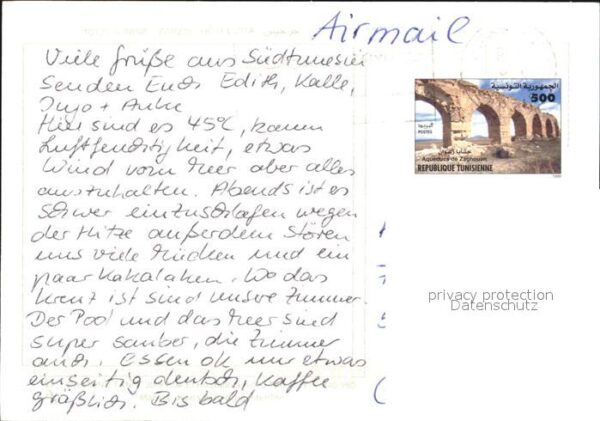 Airmail
Viele Grüße aus Südtunesien
senden Euch Edith, Kalle,
Ingo + Anke
Hier sind es 45°C, kaum
Luftfeuchtigkeit, etwas
Wind vom Meer aber alles
auszuhalten. Abends ist es
schwer einzuschlafen wegen
der Hitze außerdem stören
uns viele Mücken und ein
paar Kakalaken. Wo das
Kreuz ist sind unsre Zimmer.
Der Pool und das Meer sind
super sauber, die Zimmer
auch. Essen ok nur etwas
einseitig deutsch, Kaffee
gräßlich. Bis bald
الجمهورية التونسية
500
البريد
POSTES
Aqueducs de Zaghouan
REPUBLIQUE TUNISIENNE
privacy protection
Datenschutz